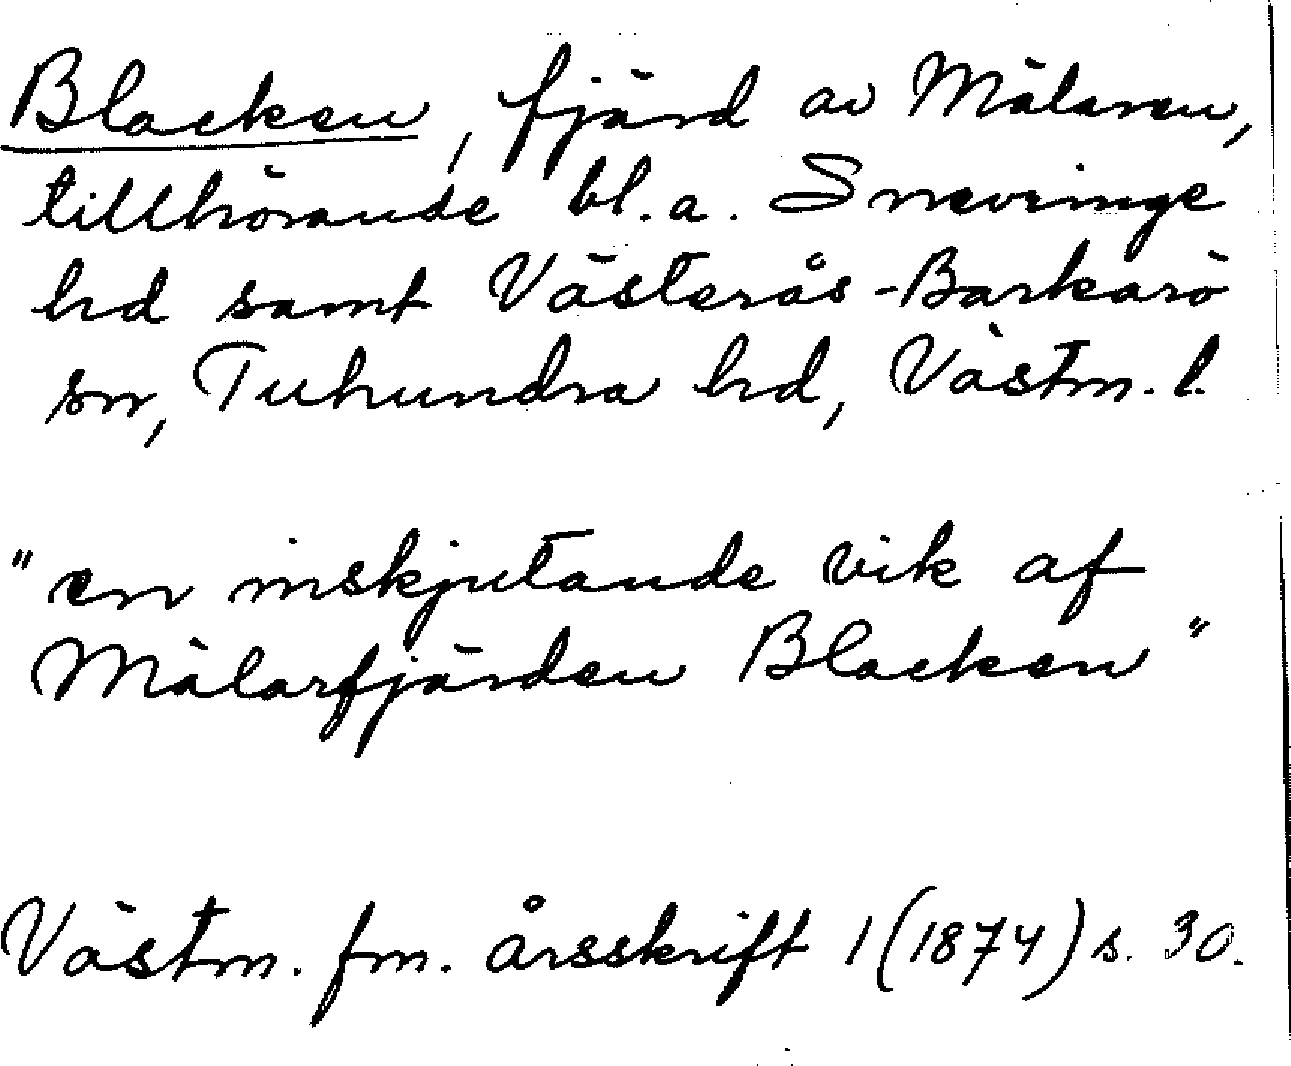 Blacken, fjärd av Mälaren,
tillhörande bl.a. Snevringe
hd samt Västerås-Barkarö
sn, Tuhundra hd, Västm. l.
"en inskjutande vik af
Mälarfjärden Blacken"
Västm. fm. årsskrift 1 (1874) s. 30.